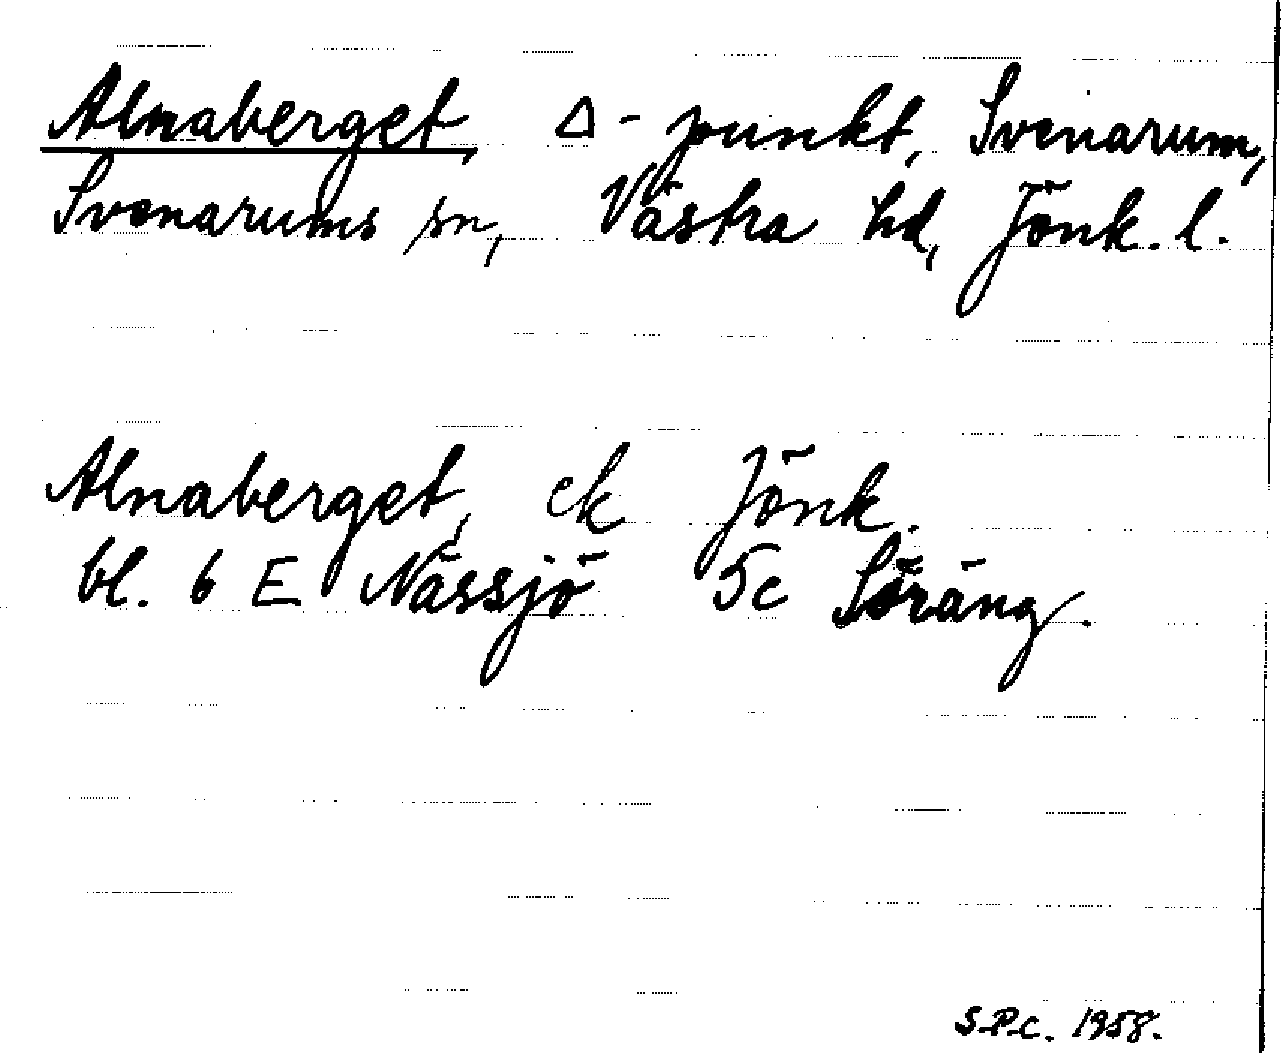 Alnaberget, Δ-punkt, Svenarum,
Svenarums sn, Västra hd, Jönk. l.
Alnaberget, ek Jönk.
bl. 6 E Nässjö 5c Söräng.
S.P.C. 1958.